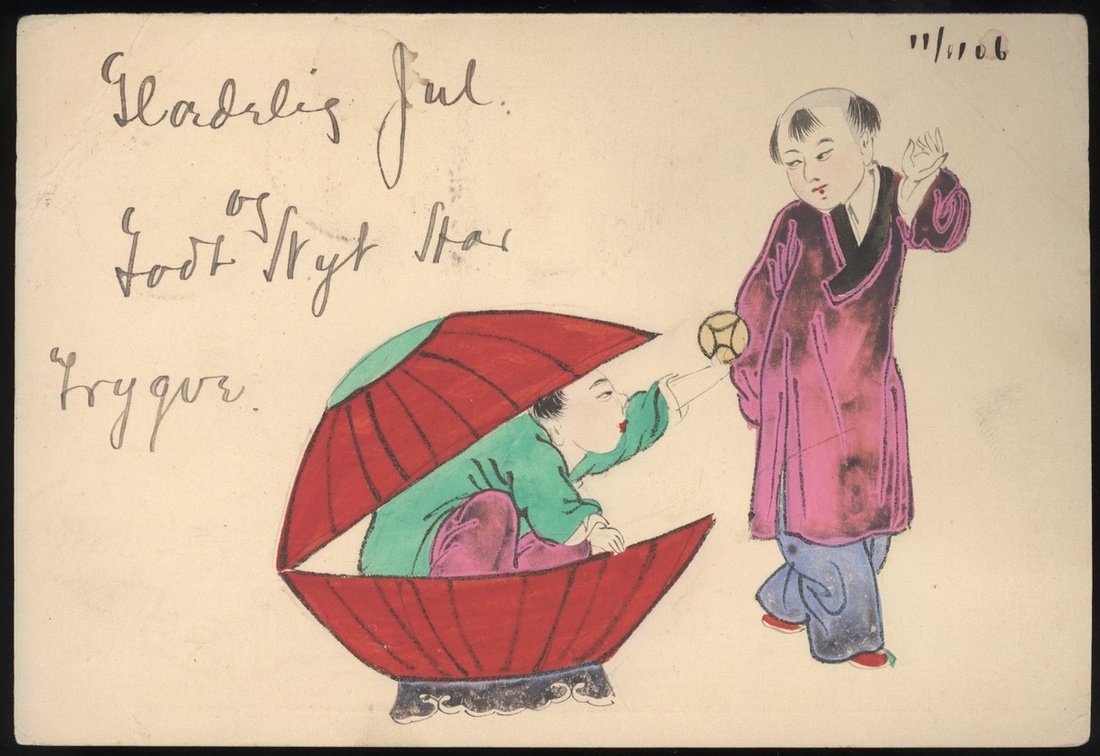 11/11 06
Glædelig Jul.
og
Godt Nyt Aar
Trygve